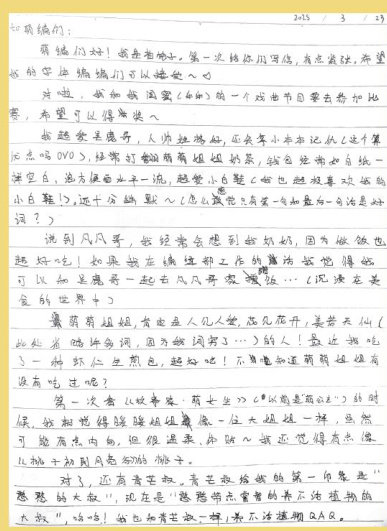 2025 / 3 / 23
知萌编们:
萌编们好!我是
第一次给你们写信,有点紧张。希望
我的字体编编们可以接受~♡
对啦,我和我闺蜜()的一个戏曲节目要去参加比
赛,希望可以得奖~
我超爱是魔哥,人帅
还会拿小本本记仇(这个算
优点吗OVO),经常打翻萌萌姐姐奶茶,钱包经常如白纸一
薄空白,逃
水平一流,超爱小白鞋(我也超极喜欢我的
小白鞋!),还十分幽默~(怎么感觉只有第一句和最后一句话是好
词?)
说到凡凡哥,我经常会想到我奶奶,因为做饭也
超好吃!如果我在编辑部工作的话我觉得我
可以和是魔哥一起去凡凡哥家蹭饭…(沉浸在美
食的世界中)
萌萌姐姐,肯定是人见人爱,花见花开,美若天仙(
此处省略许多词,因为我词穷了…)的人!最近我吃
了一种虾仁生煎包,超好吃!不知道萌萌姐姐有
没有吃过呢?
第一次看《故事家·萌女生》(以前是“萌公主”)的时
候,我相觉得暖暖姐姐像一位大姐姐一样,虽然
可能有点内向,但很温柔、体贴~我还觉得有点像
《桃子
》的桃子。
对了,还有青芒叔。青芒叔给我的第一印象是“
憨憨的大叔”,现在是“憨憨带点
的养不活植物的
大叔”,哈哈!我也和青芒叔一样,养不活植物QAQ。